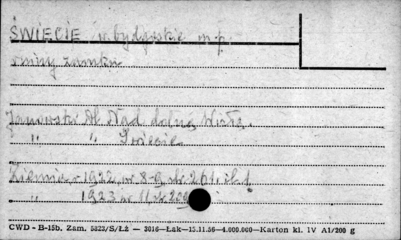 ŚWIECIE m.p.
ruiny zamku
Janowski Al. Nad dolną Wisłą.
" " Świecie
Ziemia r 1922 nr 8-9 str. 261. il. 1
" 1923 nr 11 str. 209
CWD - B-15b. Zam. 5823/S/Łż — 3016—Łak—15.11.56—4.000.000—Karton kl. IV A1/200 g